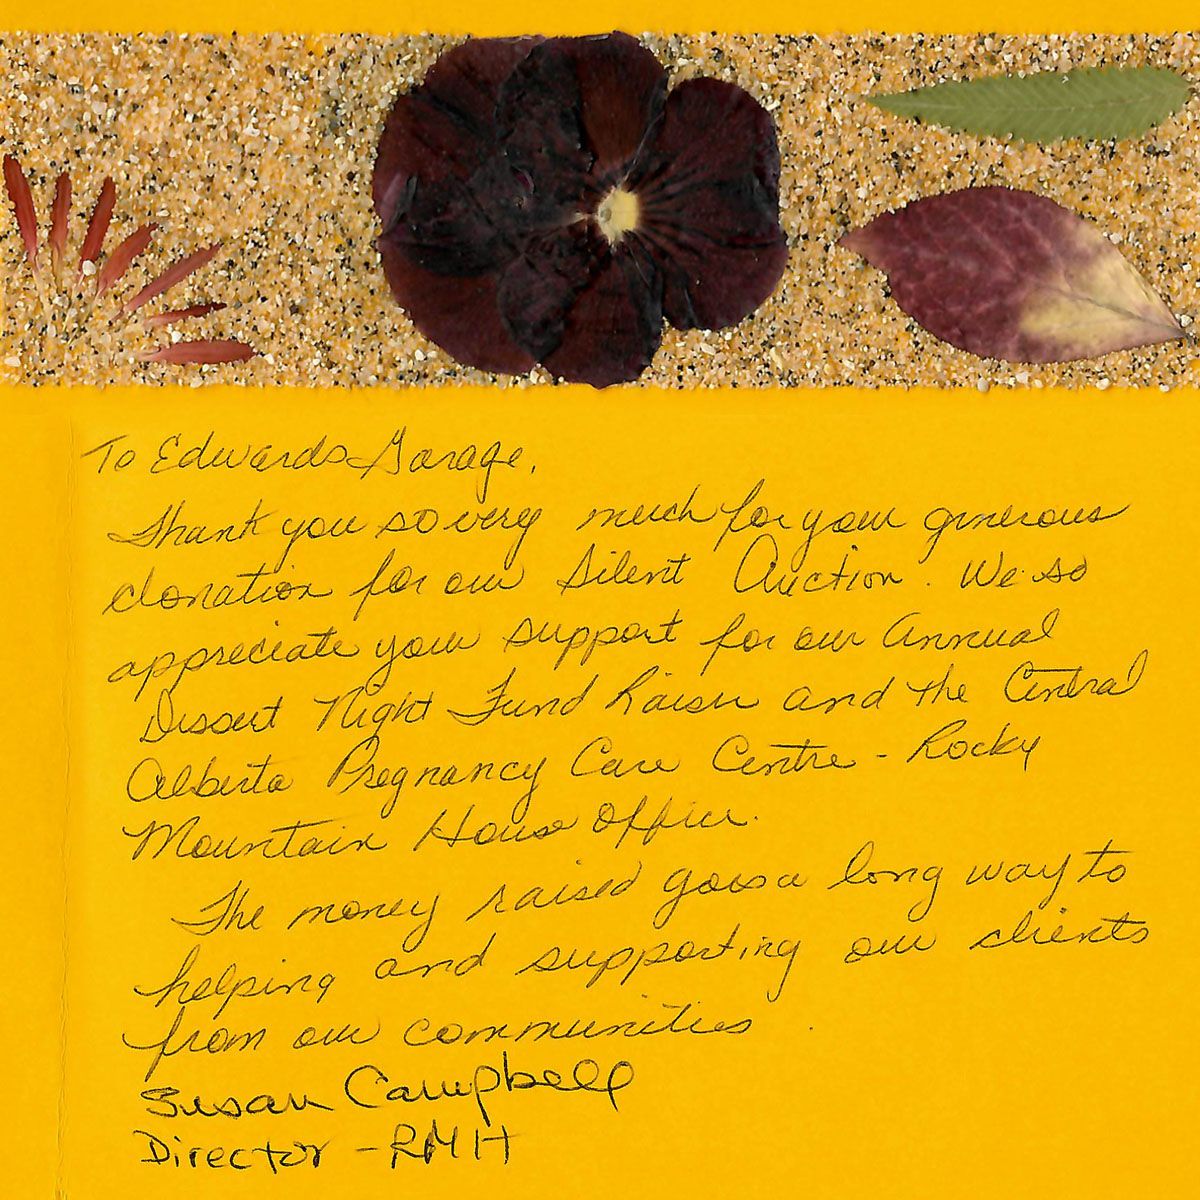 To Edwards Garage,
Thank you so very much for your generous
donation for our Silent Auction. We so
appreciate your support for our Annual
Dessert Night Fund Raiser and the Central
Alberta Pregnancy Care Centre - Rocky
Mountain House Office.
The money raised goes a long way to
helping and supporting our clients
from our communities.
Susan Campbell
Director - RMH